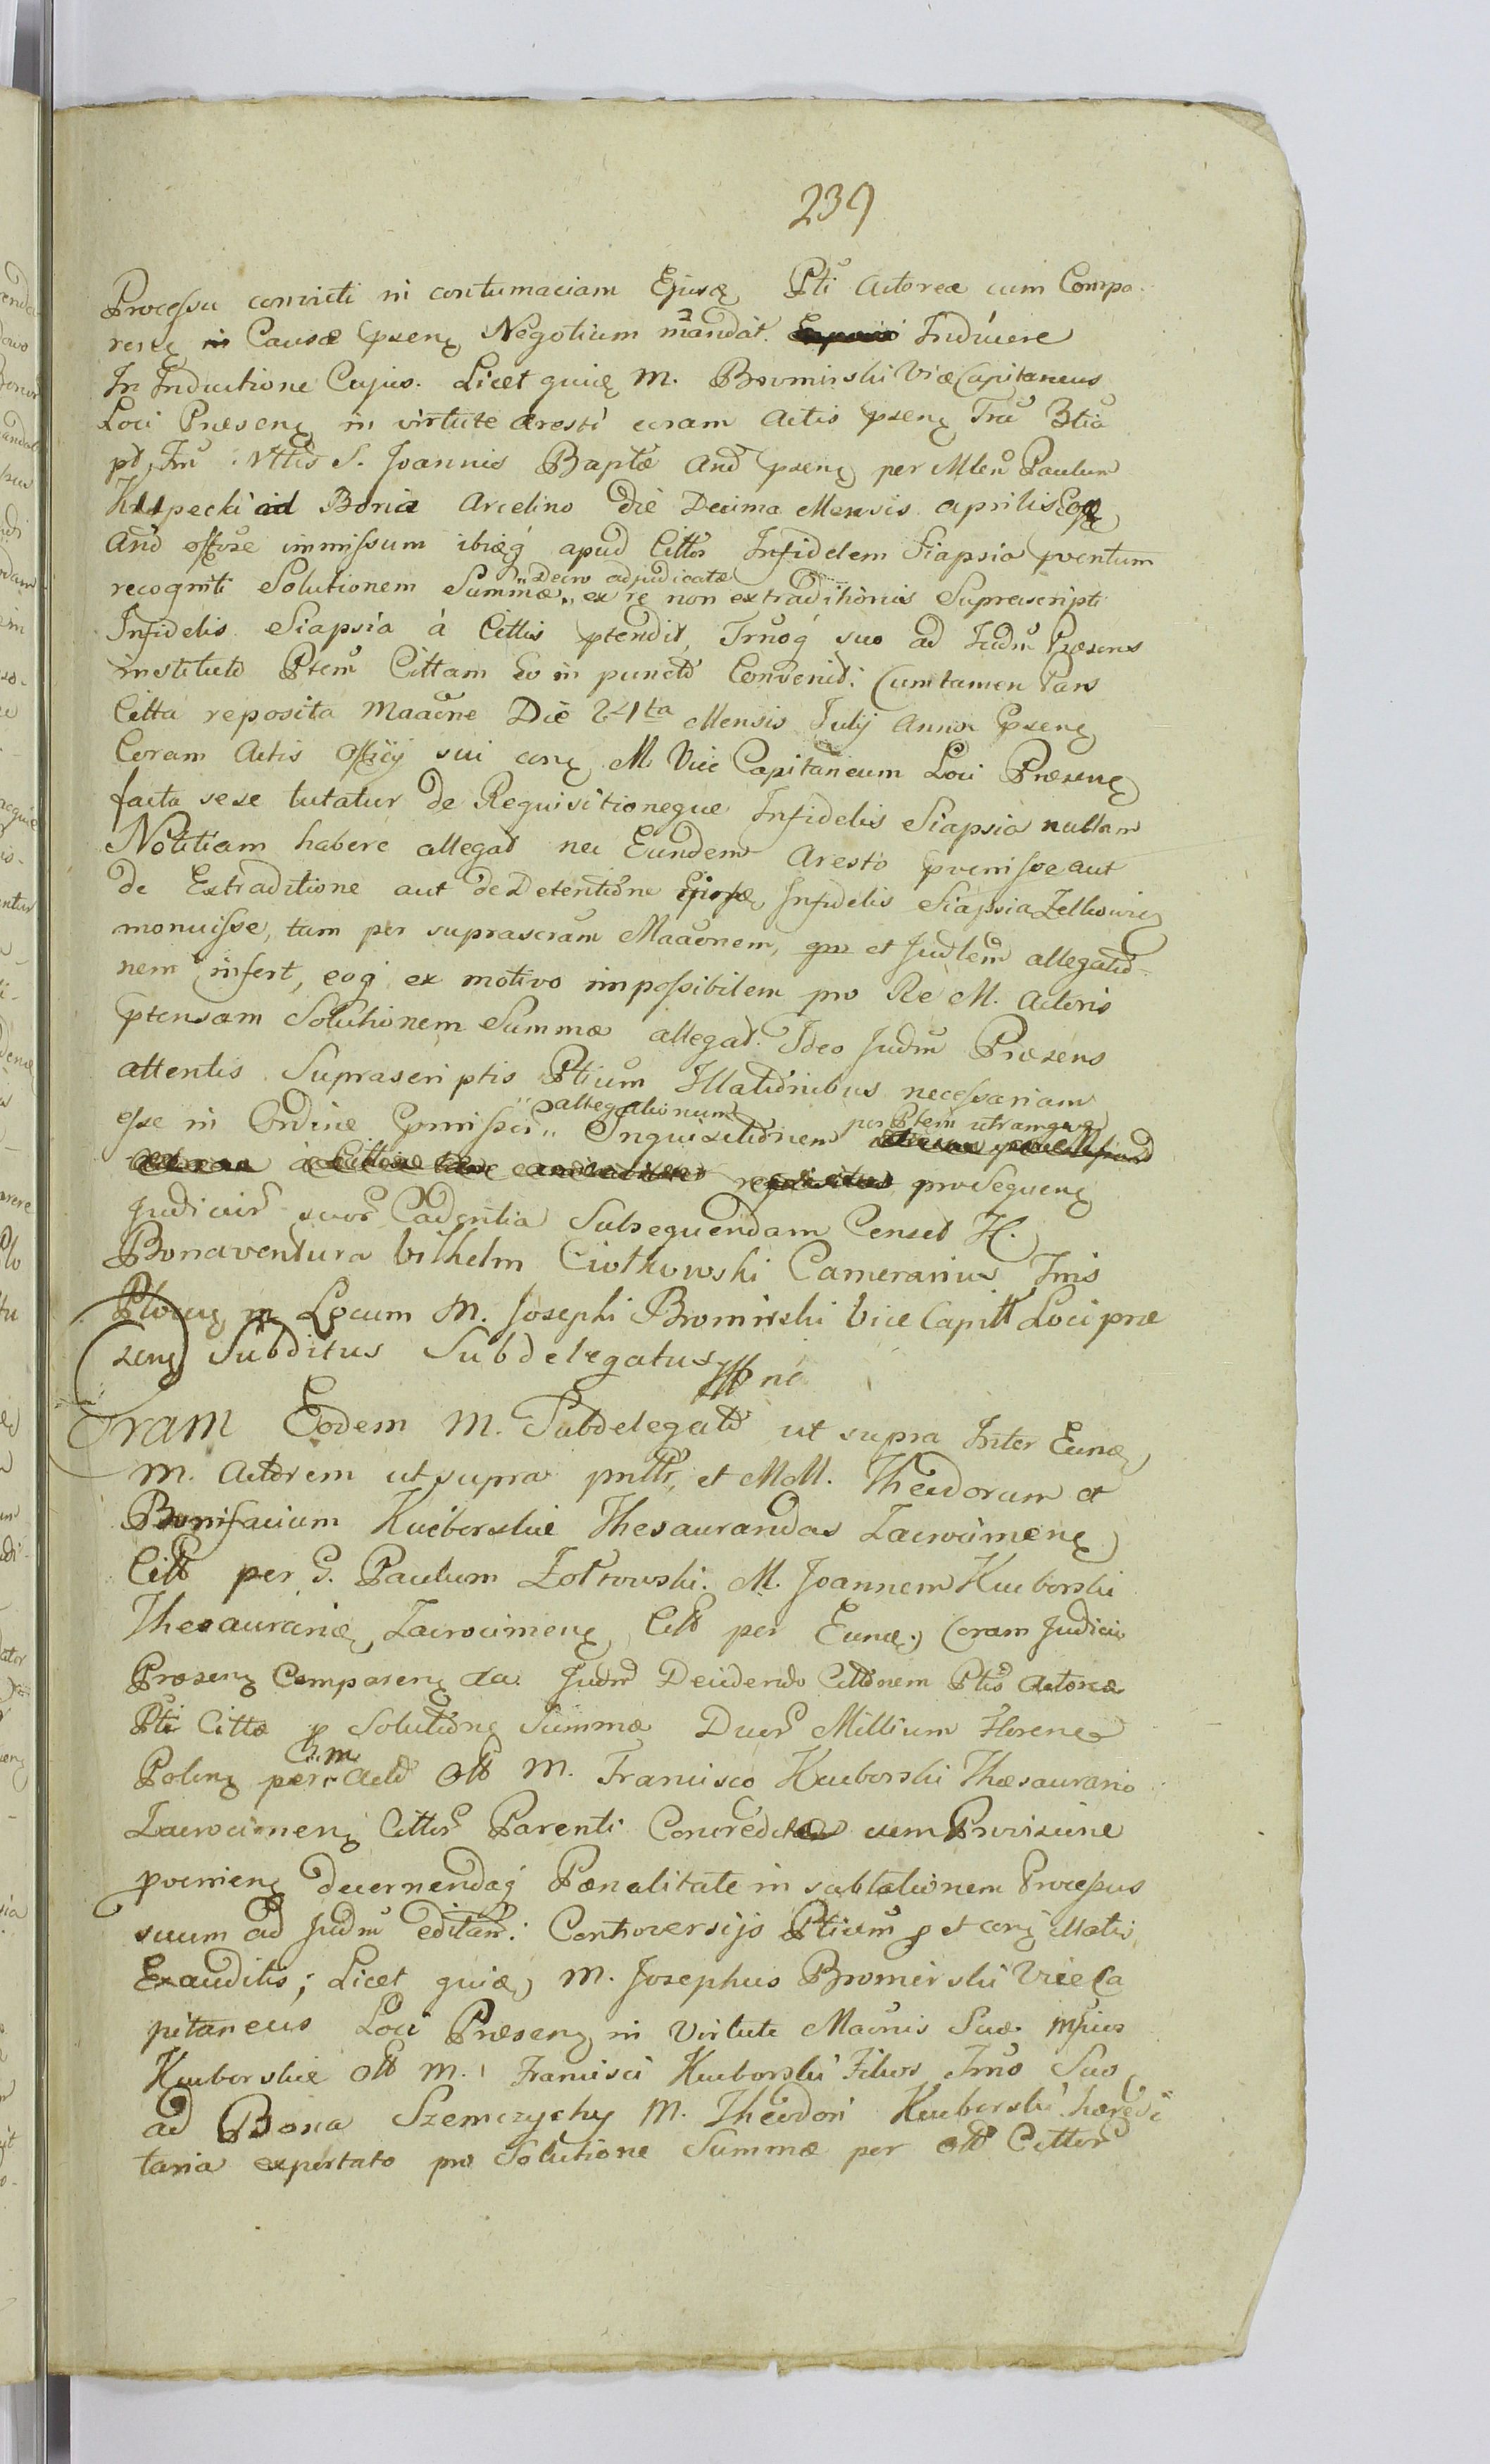 239
Processu convicti in contumaciam Ejusd Pti Actorea cum Compa
reng in Causæ pseng Negotium mandat. Inducere
In Inductione Cujus. Licet quid M. Bromirski Vice Capitaneus
Loci Præseng in virtute aresti coram Actis pseng Tru 3tia
pt Fm Ntts S. Joannis Baptæ And pseng per Mlem Paulum
ad Bona Arcelino die Decima Mensis Aprilis
And offose immissum ibiq apud Cittos Infidelem Siapsia pventum
recogniti Solutionem Summæ „ Decro adjudicatæ ex re non extraditionis Suprascripti
Infidelis Siapsia á Cittis ptendit, Trnoq suo ad Judm Præsens
instituto Ptem Cittam Eo in puncto Convenit. Cum tamen Pars
Citta reposita Maaone Die 24ta Mensis Julij Anno pseng
Coram Actis Offcij sui cong M. Vice Capitaneum Loci Præseng
facta sese tutatur de Requisitioneque Infidelis Siapsia nullam
Notitiam habere allegat nec Eundem Aresto pvenisse aut
de Extraditione aut de Detentione Infidelis Siapsia Zelkowicz
monuisse, tum per suprascram Maaonem, et Judlem allegatio
nem infert, eoq ex motivo impossibilem pro Re M. Actoris
ptensam Solutionem Summæ allegat. Ideo Judm Præsens
attentis Suprascriptis Ptium Illationibus necessariam
esse in Ordine pmissor „ allegationum Inquisitionem per Ptem utramque
proSequeng
Judicior suor Cadentia Subsequendam Censet H.
Bonaventura Vilhelm Ciolkowski Camerarius Tris
Plocen in Locum M. Josephi Bromirski Vice Capitt Loci præ
seng Subditus Subdelegatus
Coram Eodem M. Subdelegato ut supra Inter Eund
M. Actorem ut supra pntte, et MM. Theodorum et
Bonifacium Kuciborskie Thesaurandas Zacrocimeng
Citt per G. Paulum Zołtowski. M. Joannem Kuciborski
Thesauranid Zacrocimeng Citt per Eund.) Coram Judicio
Præseng Compareng da. Judm Decidendo Cittonem Ptis Actoreæ
Pti Cittæ p Solutiong Summæ Duor Millium Floreno
Poleng per M. Acto Ott M. Francisco Kuciborski Thæsaurario
Zacrocimeng Cittor Parenti Concredit cum Provisione
pvenieng decernendaq Pænalitate in sublationem Processus
suum ad Judm editam: Controversijs Ptium p et conq illatis
Exauditis; Licet quid M. Josephus Bromirski Vice Ca
pitaneus Loci Præseng in Virtute Maonis Suæ mpius
Kuciborskie Ott M. Francisci Kuciborski Filios Trno Suo
ad Bona Szemczychy M. Theodori Kuciborski hæredi
taria exportato pro Solutione Summæ per Ott Cittor